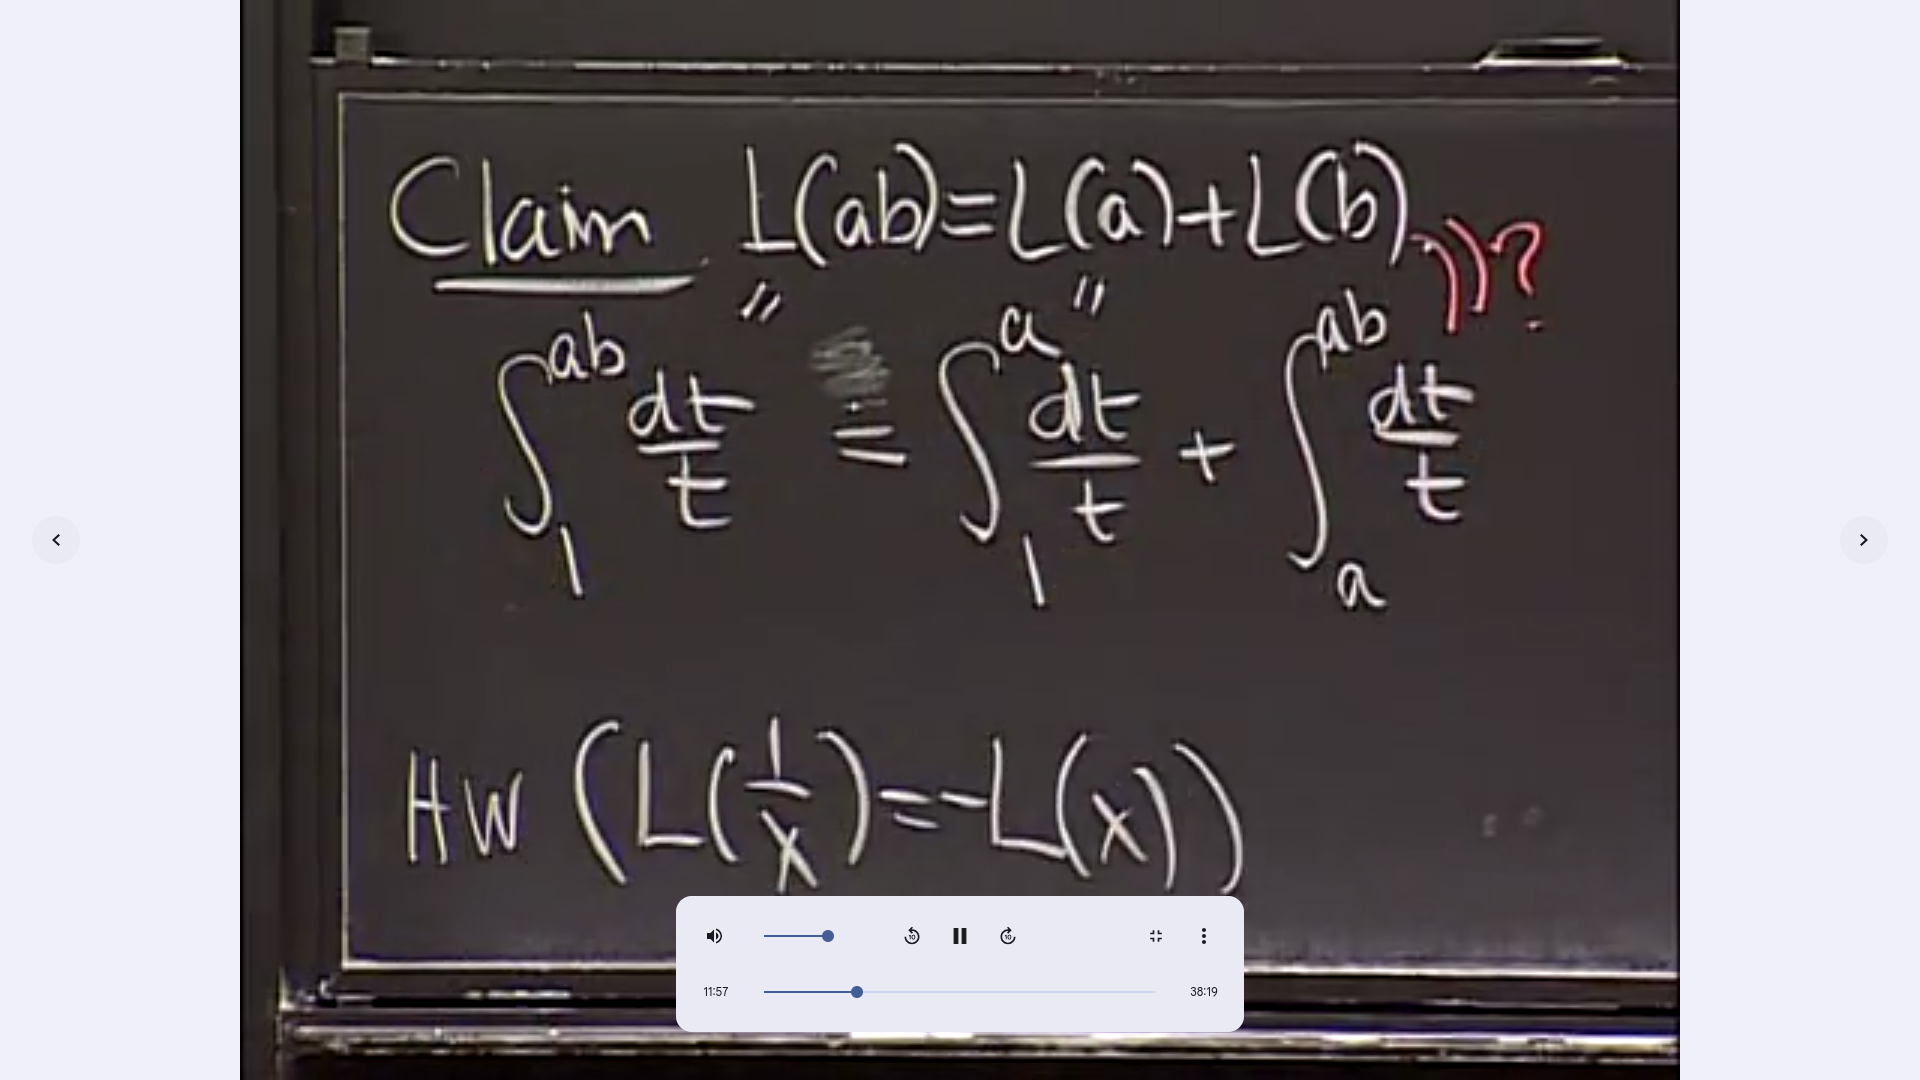 Claim L(ab)=L(a)+L(b) ))?
" "
∫₁ᵃᵇ dt/t = ∫₁ᵃ dt/t + ∫ₐᵃᵇ dt/t
HW (L(1/x)=-L(x))
10 10
11:57 38:19